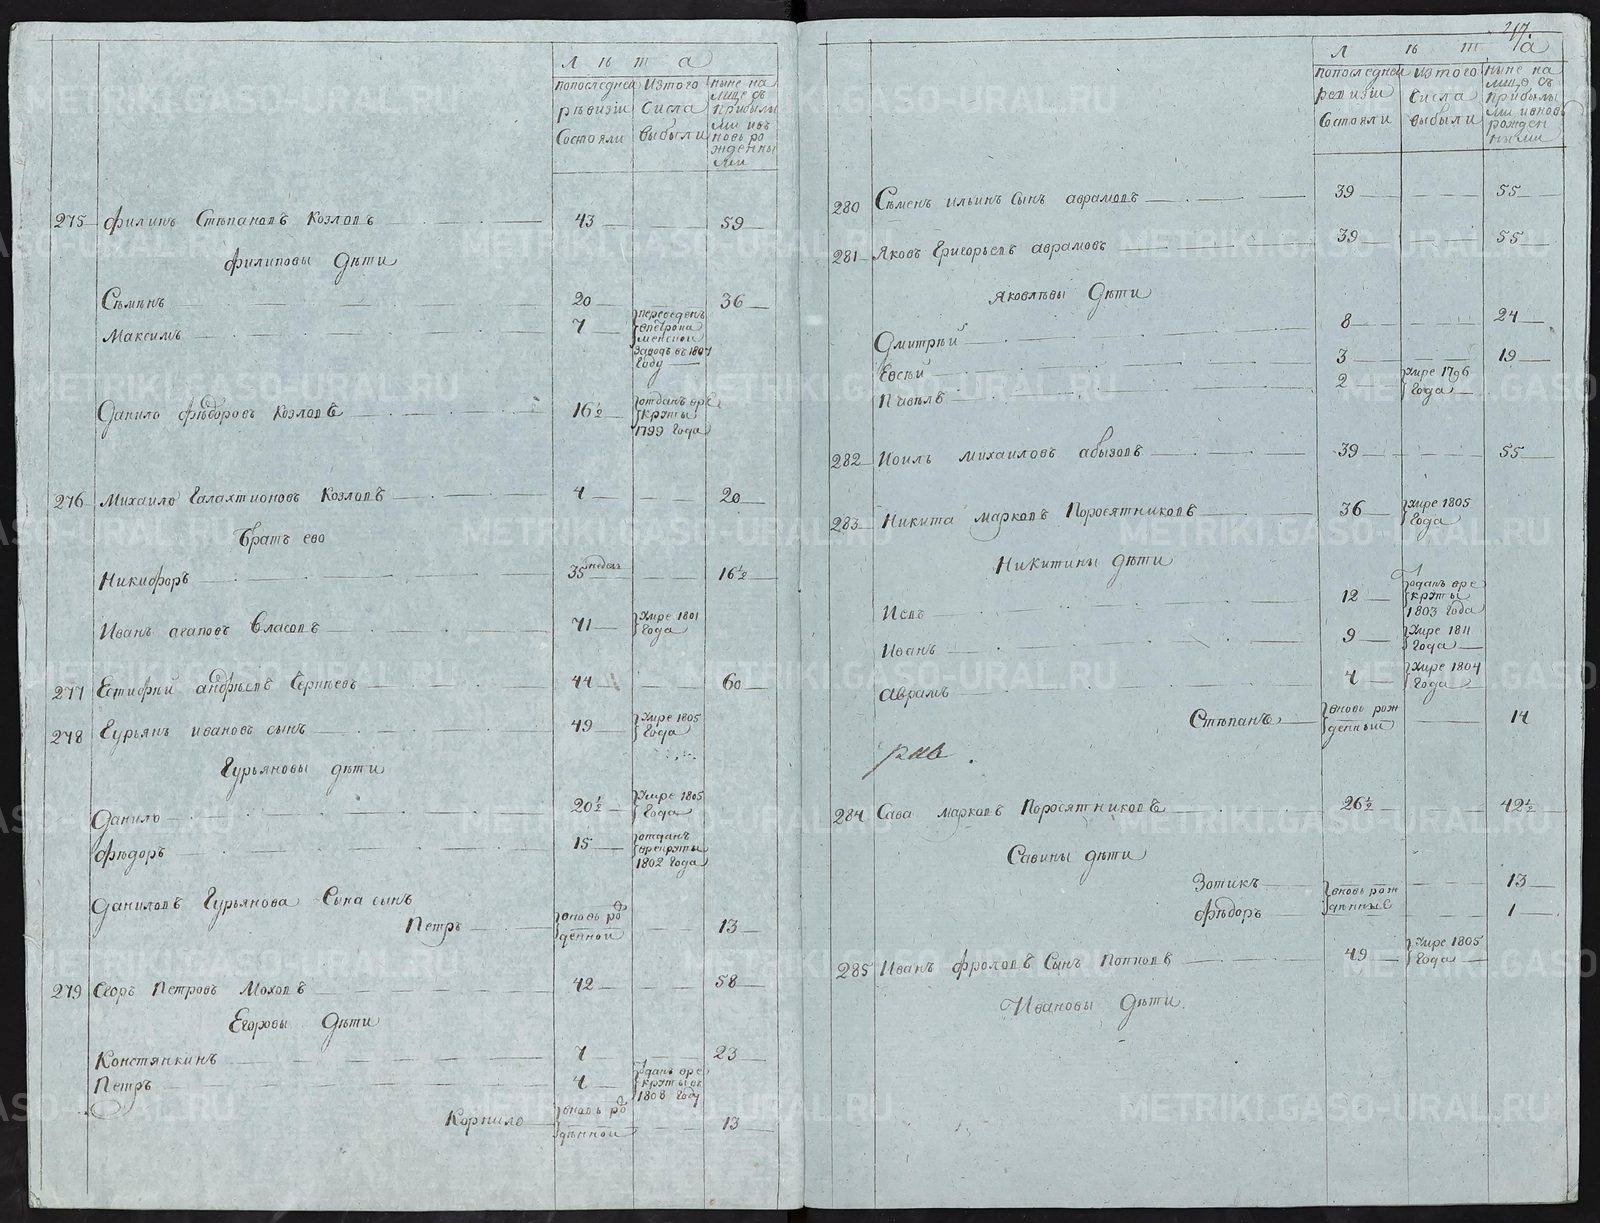 лѣта
попоследней ревизiи состояли
изтого числа выбыли
ныне на лице съ прибылыми ивновь рожденными
275 Филипъ Степановъ Козловъ 43 59
Филиповы дѣти
Семенъ 20 36
Максимъ 7 переведенъ
завода въ 1807 году
Данило Федоровъ Козловъ 16½ отданъ вре
круты
1799 года
276 Михайло Галахтионовъ Козловъ 4 20
братъ ево
Никифоръ 35 недел 16½
Иванъ агаповъ Власовъ 71 умре 1801
года
277 Естифѣй андрѣевъ Сергѣевъ 44 60
278 Гурьянъ ивановъ сынъ 49 умре 1805
года
Гурьяновы дѣти
Данило 20½ умре 1805
года
Фѣдоръ 15 отданъ
врекруты
1802 года
Даниловъ Гурьянова сына сынъ
Петръ вновь ро 13
жденной
279 Егоръ Петровъ Моховъ 42 58
Егоровы дѣти
Констянкинъ 7 23
Петръ 4 одан вре
круты
1808 году
Корнило вновь ро 13
жденной
217.
лѣта
попоследней ревизiи состояли
изтого числа выбыли
ныне на лице съ прибылыми ивновь рожденными
280 Сѣменъ ильинъ сынъ аврамовъ 39 55
281 Яковъ Григорьевъ аврамовъ 39 55
Яковлевы дѣти
Дмитрѣй 8 24
Евсѣй 3 19
Павелъ 2 умре 1796
года
282 Иоиль михаиловъ абызовъ 39 55
283 Никита марковъ Поросятниковъ 36 умре 1805
года
Никитины дѣти
Иевъ 12 одан вре
круты
1803 года
Иванъ 9 умре 1811
года
аврамъ 4 умре 1804
года
Степанъ вновь рож 14
денный
284 Сава марковъ Поросятниковъ 26½ 42½
Савины дѣти
Зотикъ вновь рож 13
Фѣдоръ денные 1
285 Иванъ фроловъ сынъ Поповъ 49 умре 1805
года
Ивановы дѣти.
METRIKI.GASO-URAL.RU